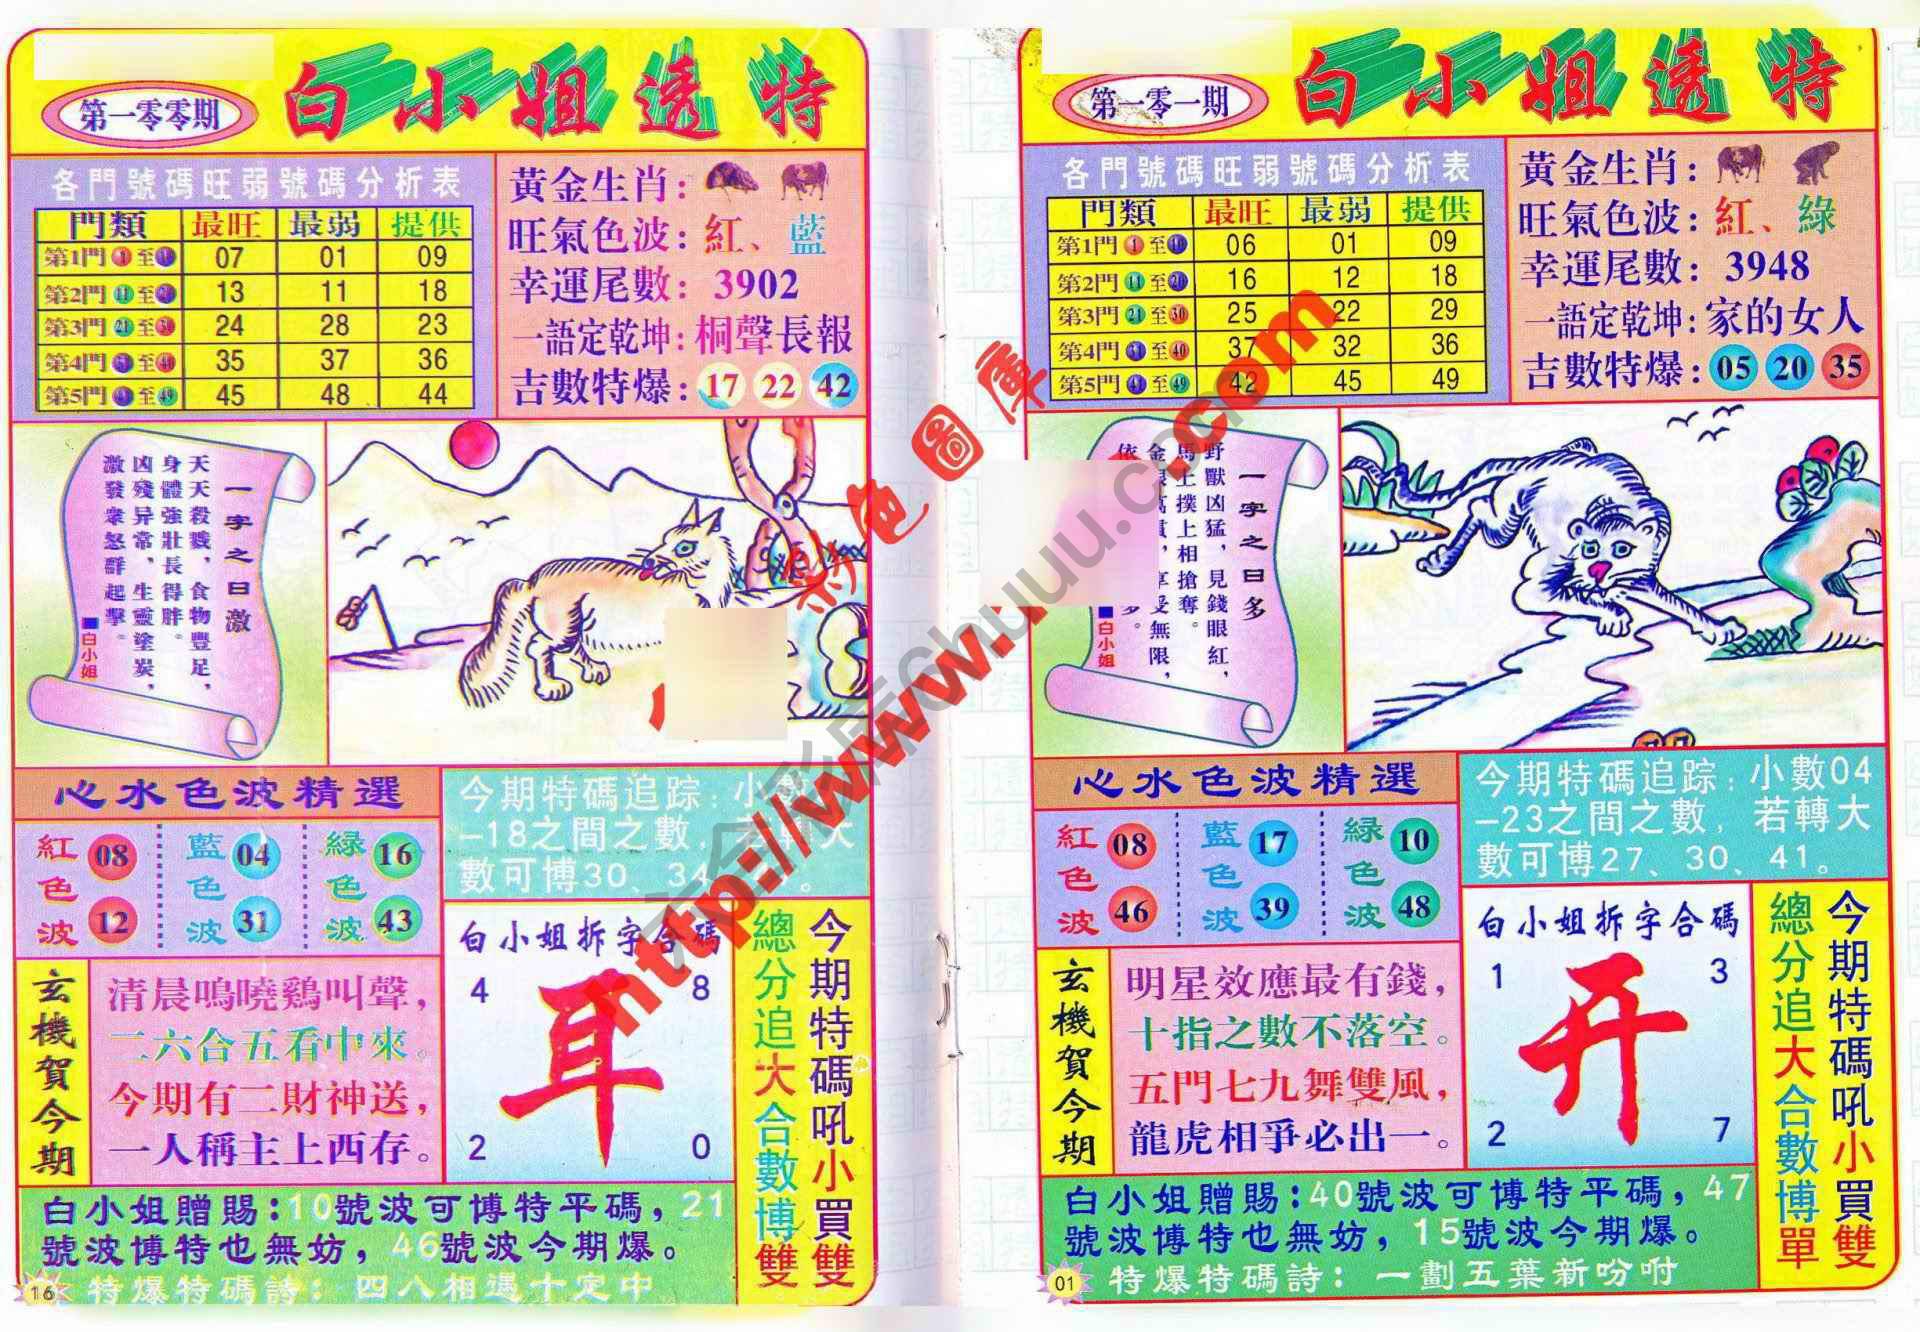 第一零零期
白小姐透特
各門號碼旺弱號碼分析表
門類 最旺 最弱 提供
第1門 1 至 10 07 01 09
第2門 11 至 20 13 11 18
第3門 21 至 30 24 28 23
第4門 31 至 40 35 37 36
第5門 41 至 49 45 48 44
黃金生肖:
旺氣色波:紅、藍
幸運尾數:3902
一語定乾坤:桐聲長報
吉數特爆:17 22 42
一字之曰激
天天殺戮,食物豐足,
身體強壯長得胖。
凶殘异常,生靈塗炭,
激發衆怒群起擊。
■白小姐
心水色波精選
紅色波 08 12
藍色波 04 31
綠色波 16 43
今期特碼追踪:小數
-18之間之數,轉大
數可博30、34。
玄機賀今期
清晨鳴曉鷄叫聲,
二六合五看中來。
今期有二財神送,
一人稱主上西存。
白小姐拆字合碼
4 8
耳
2 0
今期特碼吼小買雙
總分追大合數博雙
白小姐贈賜:10號波可博特平碼,21
號波博特也無妨,46號波今期爆。
特爆特碼詩:四八相遇十定中
16
第一零一期
白小姐透特
各門號碼旺弱號碼分析表
門類 最旺 最弱 提供
第1門 1 至 10 06 01 09
第2門 11 至 20 16 12 18
第3門 21 至 30 25 22 29
第4門 31 至 40 37 32 36
第5門 41 至 49 42 45 49
黃金生肖:
旺氣色波:紅、綠
幸運尾數:3948
一語定乾坤:家的女人
吉數特爆:05 20 35
一字之曰多
野獸凶猛,見錢眼紅,
馬上撲上相搶奪。
金,享受無限,
依多。
■白小姐
心水色波精選
紅色波 08 46
藍色波 17 39
綠色波 10 48
今期特碼追踪:小數04
-23之間之數,若轉大
數可博27、30、41。
玄機賀今期
明星效應最有錢,
十指之數不落空。
五門七九舞雙風,
龍虎相爭必出一。
白小姐拆字合碼
1 3
开
2 7
今期特碼吼小買雙
總分追大合數博單
白小姐贈賜:40號波可博特平碼,47
號波博特也無妨,15號波今期爆。
特爆特碼詩:一劃五葉新吩咐
01